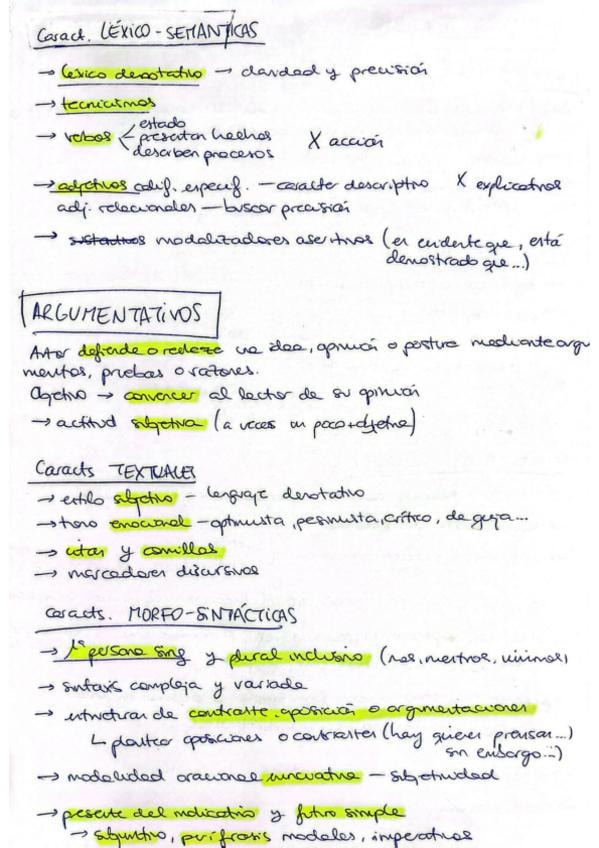 Caract. LÉXICO-SEMÁNTICAS
→ léxico denotativo → claridad y precisión
→ tecnicismos
→ verbos < estado
presentan hechos X acción
describen procesos
→ adjetivos calif. especif. — carácter descriptivo X explicativos
adj. relacionales — buscar precisión
→ modalizadores asertivos (es evidente que, está
demostrado que...)
ARGUMENTATIVOS
Autor defiende o rechaza una idea, opinión o postura mediante argu
mentos, pruebas o razones.
Objetivo → convencer al lector de su opinión
→ actitud subjetiva (a veces un poco + objetiva)
Caracts TEXTUALES
→ estilo subjetivo – lenguaje denotativo
→ tono emocional – optimista, pesimista, crítico, de queja...
→ citas y comillas
→ marcadores discursivos
caracts. MORFO-SINTÁCTICAS
→ 1ª persona sing y plural inclusivo (nos, nuestros, vivimos)
→ sintaxis compleja y variada
→ estructuras de contraste, oposición o argumentaciones
↳ plantea oposiciones o contrastes (hay quienes piensan...)
sin embargo...)
→ modalidad oracional enunciativa – subjetividad
→ presente del indicativo y futuro simple
→ subjuntivo, perífrasis modales, imperativos